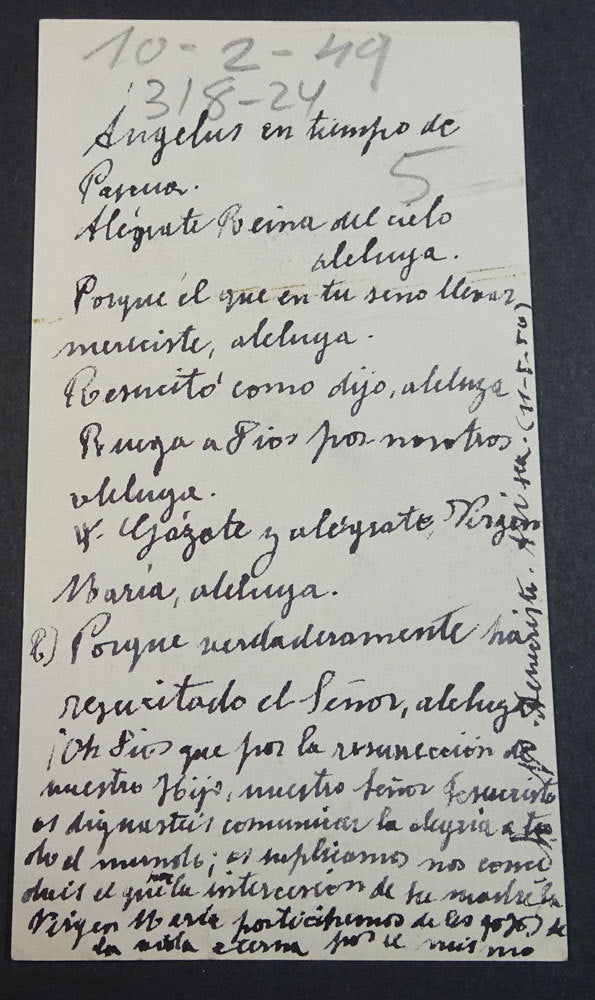 10-2-49
318-24
5
Angelus en tiempo de
Pascua.
Alégrate Reina del cielo
aleluya.
Porque el que en tu seno llevar
mereciste, aleluya.
Resucitó como dijo, aleluya
Ruega a Dios por nosotros
aleluya.
℣- Gózate y alégrate, Virgen
María, aleluya.
R) Porque verdaderamente ha
resucitado el Señor, aleluya
¡Oh Dios que por la resurección de
nuestro Hijo, nuestro Señor Jesucristo
os dignasteis comunicar la alegria a to
do el mundo; os suplicamos nos conce
dais el que por la intercesión de su madre la
Virgen María participemos de los gozos de
la vida eterna por el mismo
Jesucristo. Así sea. (11-5-50)